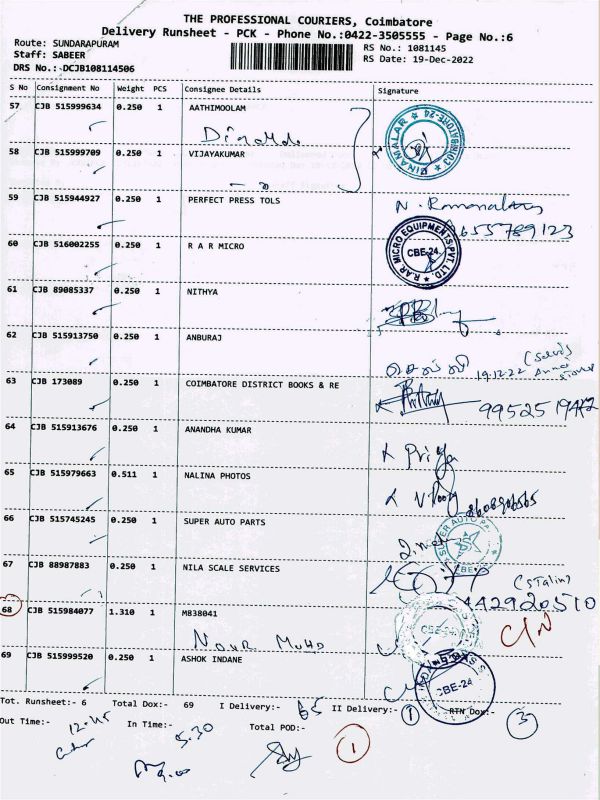 THE PROFESSIONAL COURIERS, Coimbatore
Delivery Runsheet - PCK - Phone No.:0422-3505555 - Page No.:6
Route: SUNDARAPURAM
RS No.: 1081145
Staff: SABEER
RS Date: 19-Dec-2022
DRS No.: DCJB108114506
S No Consignment No Weight PCS Consignee Details Signature
57 CJB 515999634 0.250 1 AATHIMOOLAM
DINAMALAR COIMBATORE-24
58 CJB 515999709 0.250 1 VIJAYAKUMAR
59 CJB 515944927 0.250 1 PERFECT PRESS TOLS
60 CJB 516002255 0.250 1 R A R MICRO
R.AR MICRO EQUIPMENTS PVT. LTD CBE-24.
61 CJB 89085337 0.250 1 NITHYA
62 CJB 515913750 0.250 1 ANBURAJ
19.12.22
63 CJB 173089 0.250 1 COIMBATORE DISTRICT BOOKS & RE
64 CJB 515913676 0.250 1 ANANDHA KUMAR
Priya
65 CJB 515979663 0.511 1 NALINA PHOTOS
66 CJB 515745245 0.250 1 SUPER AUTO PARTS
SUPER AUTO PA
67 CJB 88987883 0.250 1 NILA SCALE SERVICES
(Stalin)
68 CJB 515984077 1.310 1 M838041
NOUR MUHD
69 CJB 515999520 0.250 1 ASHOK INDANE
CBE-24
Tot. Runsheet:- 6 Total Dox:- 69 I Delivery:- 65 II Delivery:- 1 RTN Dox:- 3
Out Time:- In Time:- 5.30 Total POD:- 1